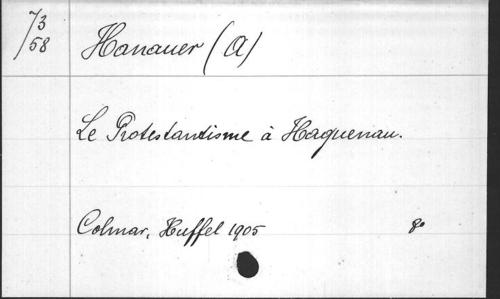 73
/58
Hanauer (A)
Le Protestantisme à Haguenau.
Colmar, Huffel 1905 8°